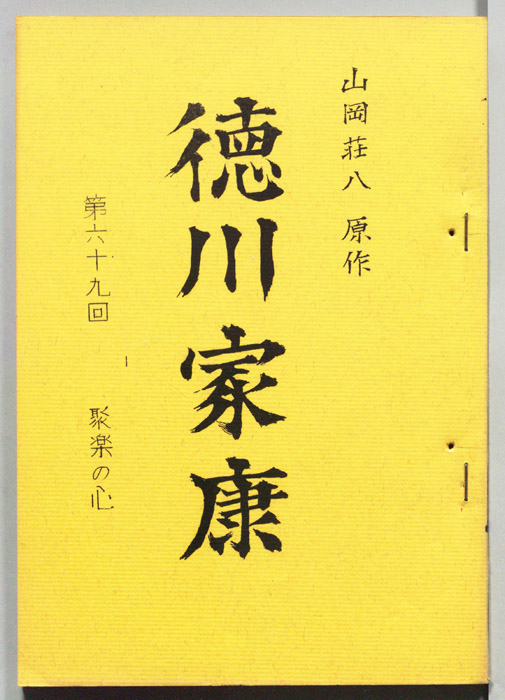 山岡荘八 原作
徳川家康
第六十九回 聚楽の心